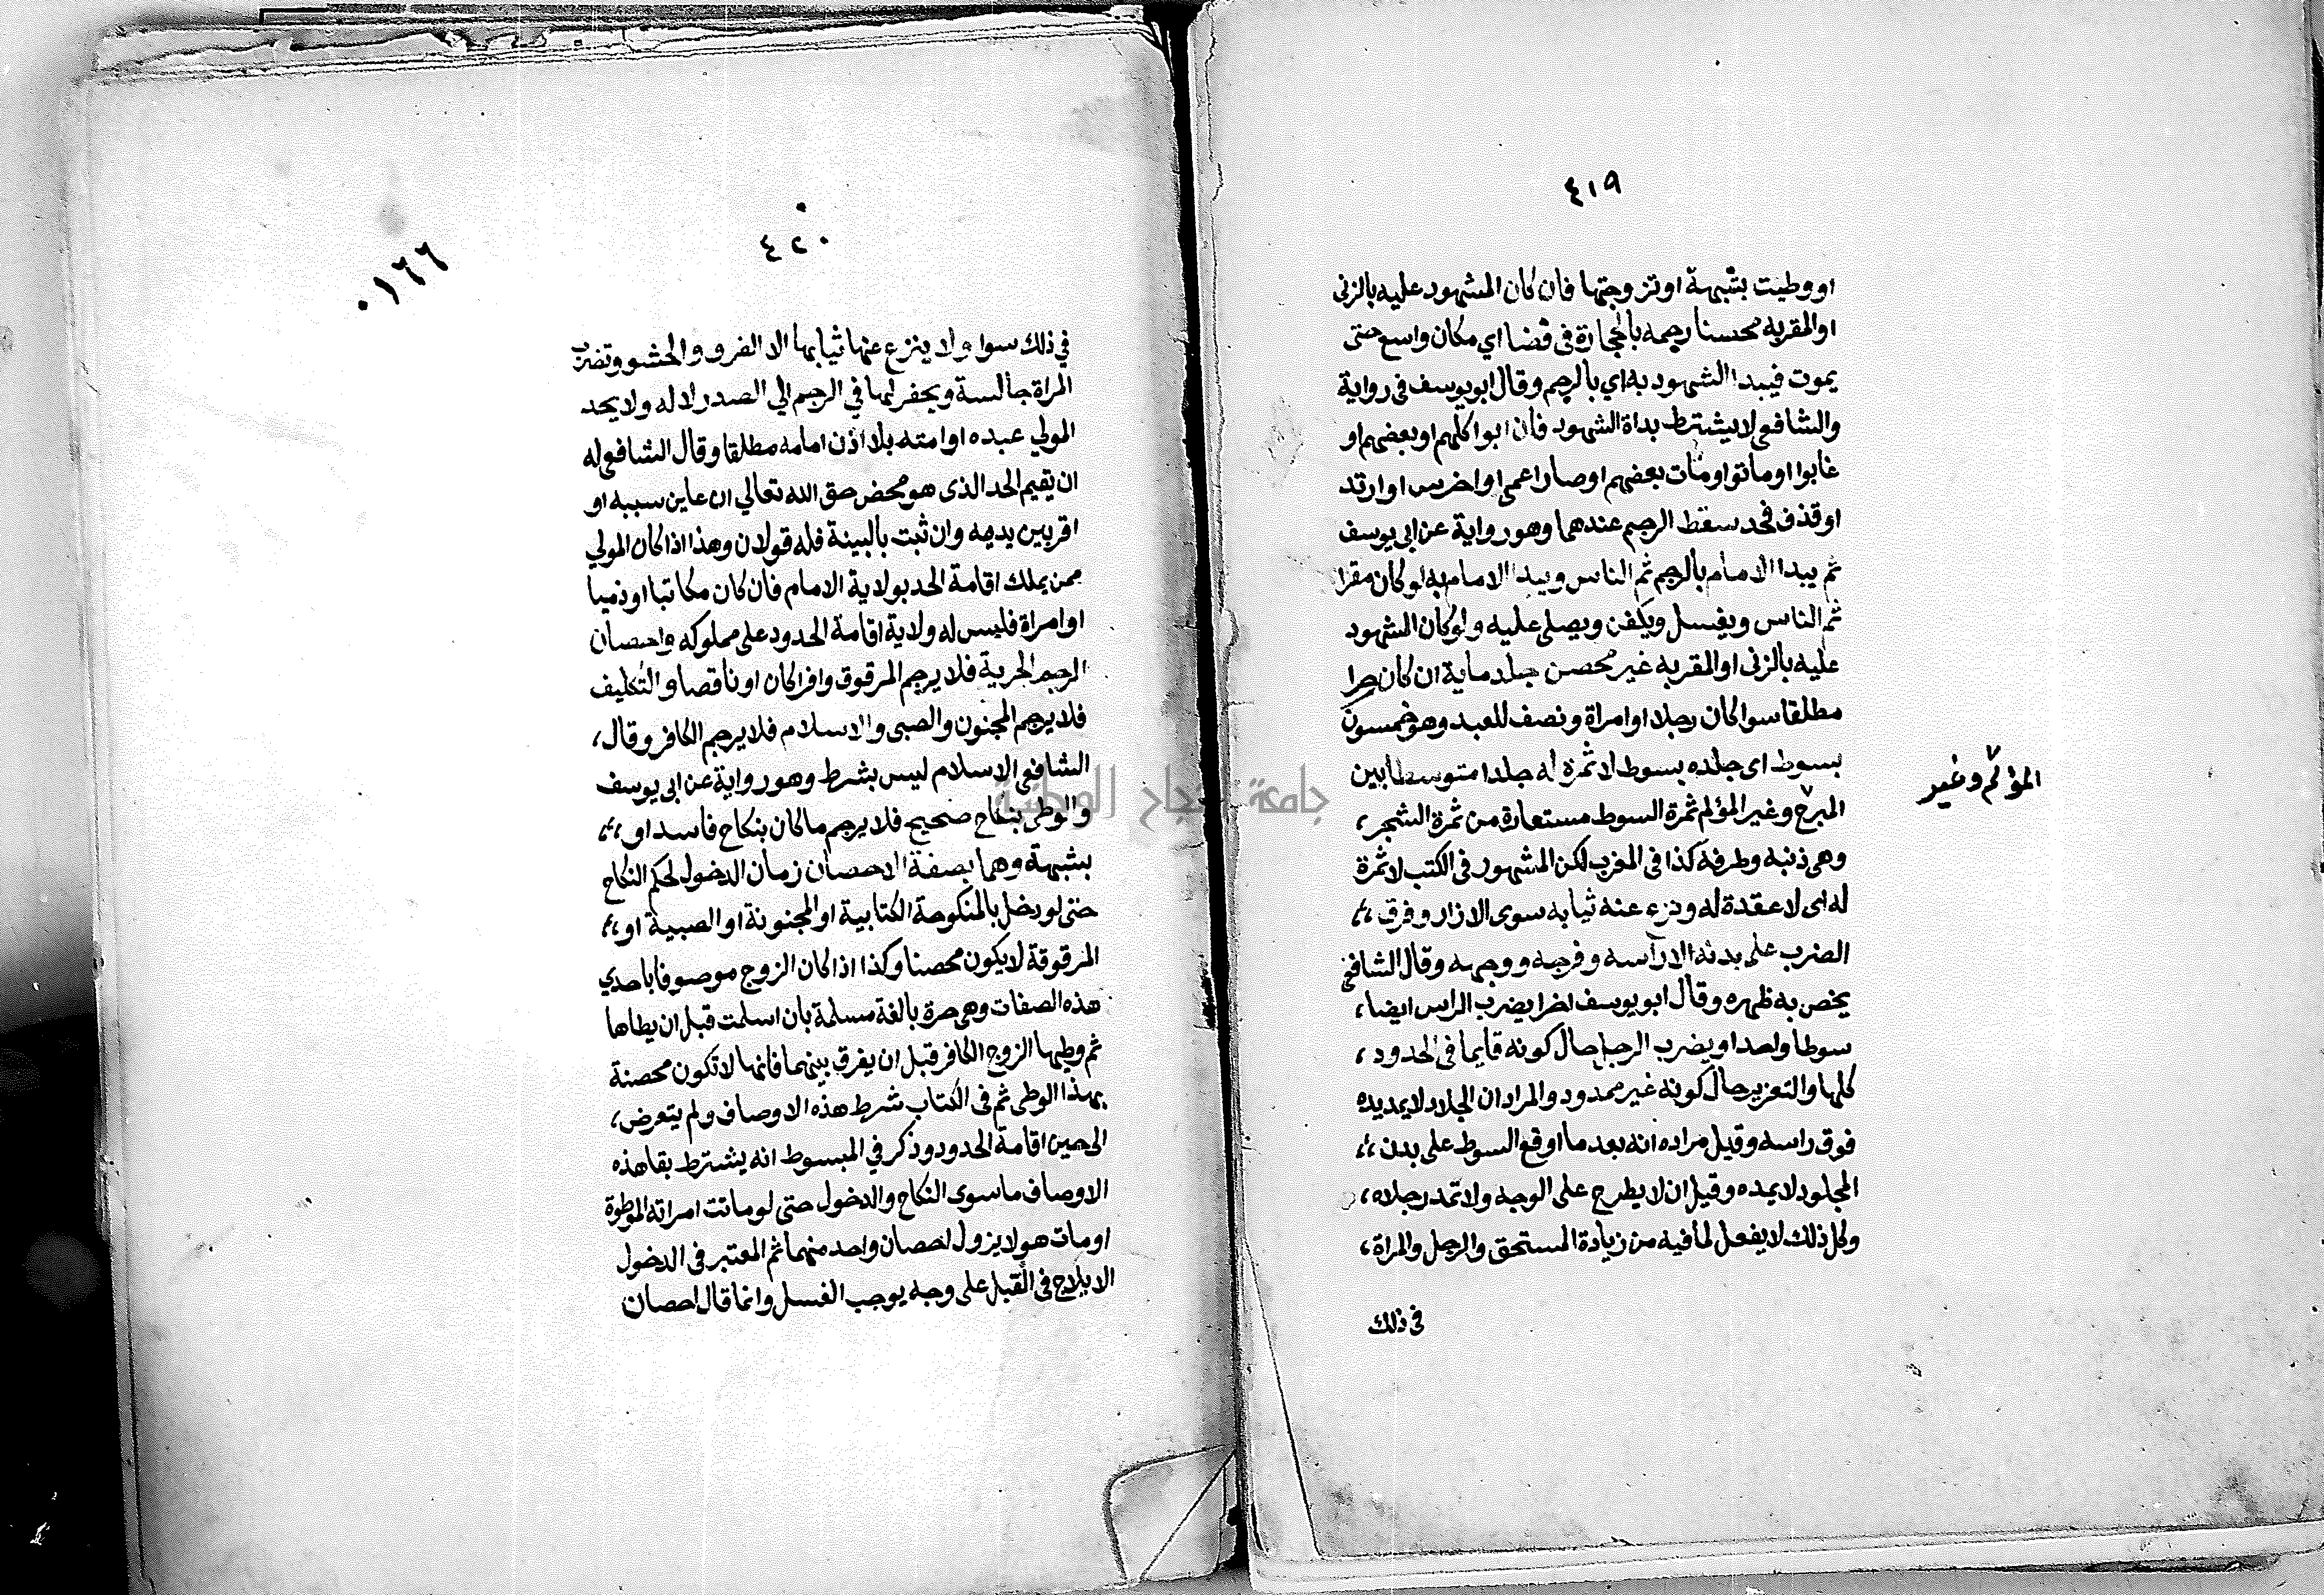 ٤١٩
او وطيت بشبهة او تزوجتها فان كان المشهود عليه بالزنى
او المقر به محصنا رجمه بالحجارة في فضا اي مكان واسع حتى
يموت فيبدا الشهود به اي بالرجم وقال ابو يوسف في رواية
والشافعي لا يشترط بداة الشهود فان ابوا كلهم او بعضهم او
غابوا او ماتوا او مات بعضهم او صار اعمى او اخرس او ارتد
او قذف فحد سقط الرجم عندهما وهو رواية عن ابي يوسف
ثم يبدا الامام بالرجم ثم الناس ويبدا الامام به لو كان مقرا
ثم الناس ويغسل ويكفن ويصلى عليه ولو كان المشهود
عليه بالزنى او المقر به غير محصن جلد ماية ان كان حرا
مطلقا سوا كان رجلا او امراة ونصف للعبد وهو خمسون
بسوط اى جلده بسوط لا ثمرة له جلدا متوسطا بين
المبرح وغير المؤلم ثمرة السوط مستعارة من ثمرة الشجر،
المؤلم وغير
وهى ذنبه وطرفه كذا في المغرب لكن المشهور في الكتب لا ثمرة
له اى لا عقدة له ونزع عنه ثيابه سوى الازار وفرق،،
الضرب على بدنه الا راسه وفرجه ووجهه وقال الشافعي
يخص به ظهره وقال ابو يوسف اخرا يضرب الراس ايضا،
سوطا واحدا ويضرب الرجل حال كونه قايما في الحدود،
كلها والتعزير حال كونه غير ممدود والمراد ان الجلاد لا يمد يده
فوق راسه وقيل مراده انه بعد ما اوقع السوط على بدن،،
المجلود لا يمده وقيل ان لا يطرح على الوجه ولا تمد رجلاه،
وكل ذلك لا يفعل لما فيه من زيادة المستحق والرجل والمراة،
في ذلك
٤٢٠
٠١٦٦
في ذلك سوا ولا ينزع عنها ثيابها الا الفرو والحشو وتضرب
المراة جالسة ويحفر لها في الرجم الي الصدر لا له ولا يحد
المولي عبده او امته بلا اذن امامه مطلقا وقال الشافعي له
ان يقيم الحد الذى هو محض حق الله تعالي ان عاين سببه او
اقر بين يديه وان ثبت بالبينة فله قولان وهذا اذا كان المولي
ممن يملك اقامة الحد بولاية الامام فان كان مكاتبا او ذميا
او امراة فليس له ولاية اقامة الحدود على مملوكه واحصان
الرجم الحرية فلا يرجم المرقوق وافرا كان او ناقصا والتكليف
فلا يرجم المجنون والصبى والاسلام فلا يرجم الكافر وقال،
الشافعي الاسلام ليس بشرط وهو رواية عن ابى يوسف
والوطى بنكاح صحيح فلا يرجم ما كان بنكاح فاسد او،،
بشبهة وهما بصفة الاحصان زمان الدخول لحكم النكاح
حتى لو دخل بالمنكوحة الكتابية او المجنونة او الصبية او،،
المرقوقة لا يكون محصنا وكذا اذا كان الزوج موصوفا باحدي
هذه الصفات وهى حرة بالغة مسلمة بان اسلمت قبل ان يطاها
ثم وطيها الزوج الكافر قبل ان يفرق بينهما فانها لا تكون محصنة
بهذا الوطى ثم في الكتاب شرط هذه الاوصاف ولم يتعرض،
الى حين اقامة الحدود وذكر في المبسوط انه يشترط بقا هذه
الاوصاف ما سوى النكاح والدخول حتى لو ماتت امراته الموطوة
او مات هو لا يزول احصان واحد منهما ثم المعتبر في الدخول
الايلاج في القبل على وجه يوجب الغسل وانما قال احصان
جامعة النجاح الوطنية